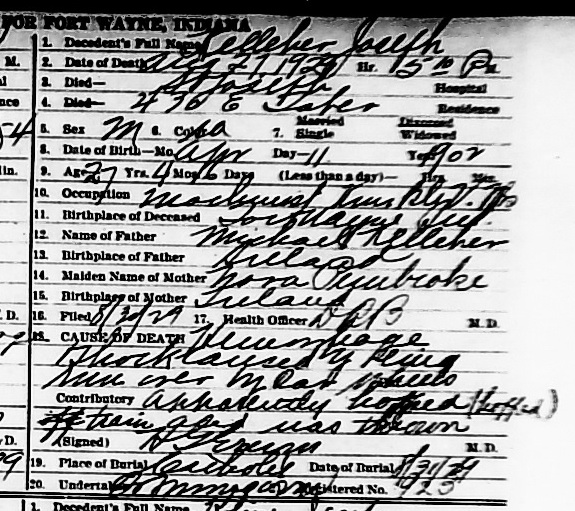 FOR FORT WAYNE, INDIANA
1. Decedent's Full Name Kelleher Joseph
2. Date of Death Aug 27 1929 Hr. 5 10 P M.
3. Died— St Joseph Hospital
4. Died— 470 E Taber Residence
5. Sex M 6. Color Wa 7. Married Single Divorced Widowed
8. Date of Birth—Mo. Apr Day—11 Year 1902
9. Age 27 Yrs. 4 Mos. Days (Less than a day)— Hrs. Min.
10. Occupation Machinist
11. Birthplace of Deceased Fort Wayne Ind
12. Name of Father Michael Kelleher
13. Birthplace of Father Ireland
14. Maiden Name of Mother Nora Pembroke
15. Birthplace of Mother Ireland
16. Filed 8/30/29 17. Health Officer M. D.
18. CAUSE OF DEATH Hemorrhage
Shock caused by being
run over by car wheels
Contributory apparently hopped (hopped)
off train and was thrown
(Signed) M. D.
19. Place of Burial Catholic Date of Burial 8/30/29
20. Undertaker Registered No. 923
1. Decedent's Full Name